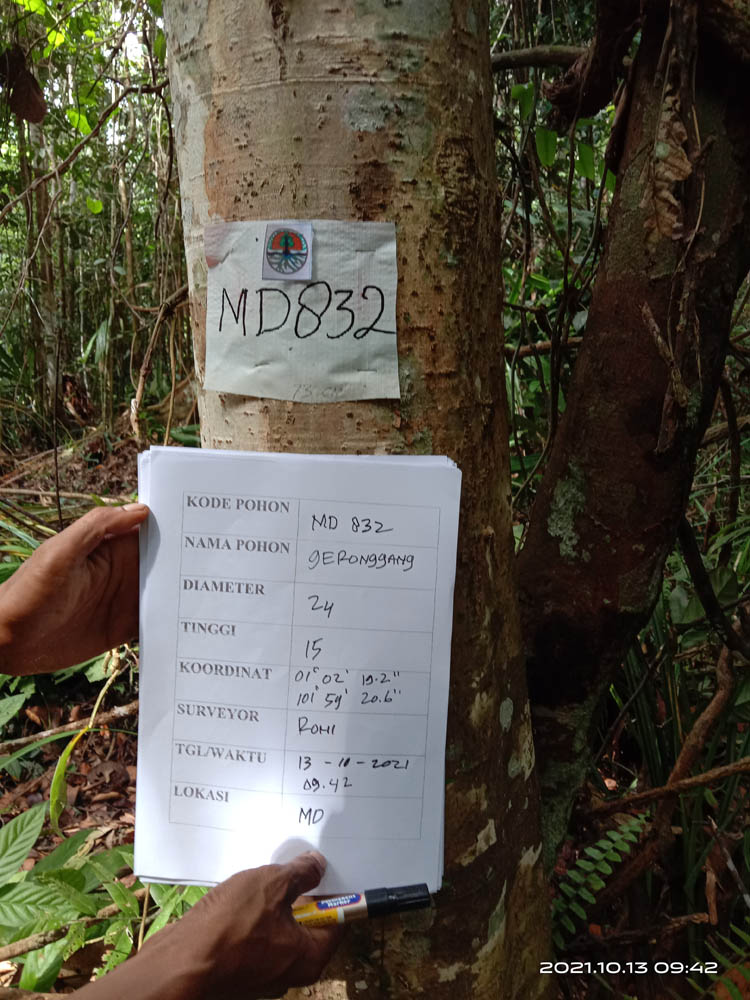 MD832
KODE POHON MD 832
NAMA POHON gERONggANg
DIAMETER 24
TINGGI 15
KOORDINAT 01° 02' 19.2"
101° 59' 20.6"
SURVEYOR ROMI
TGL/WAKTU 13 - 10 - 2021
09.42
LOKASI MD
Permanent
Marker
2021.10.13 09:42